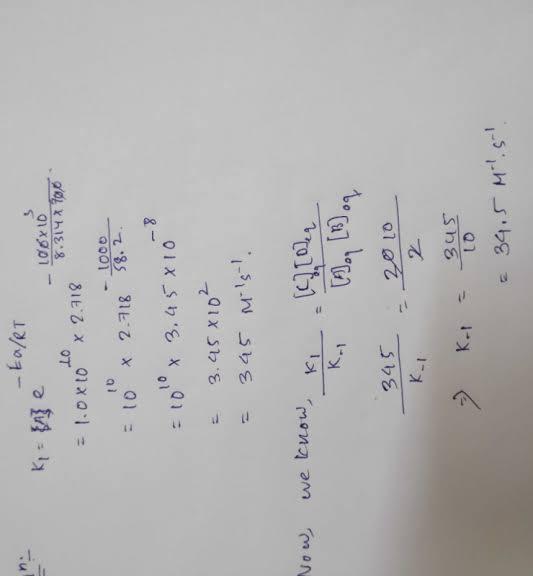 n:-
K₁ = e^(-Ea/RT)
= 1.0×10^10 × 2.718^(-100×10^3 / 8.314×700)
= 10^10 × 2.718^(-1000/58.2)
= 10^10 × 3.45×10^-8
= 3.45×10^2
= 345 M^-1 s^-1.
Now, we know, K₁/K₋₁ = [C]eq[D]eq / [A]eq[B]eq
345/K₋₁ = 10/2
⇒ K₋₁ = 345/10
= 34.5 M^-1. s^-1.